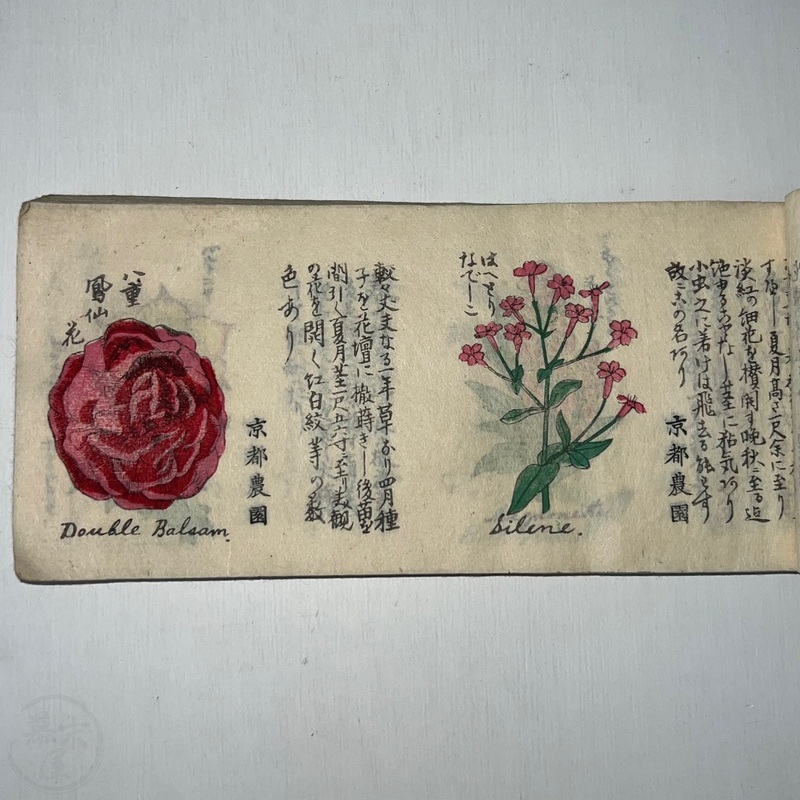 すなし夏月高さ一尺余に至り
淡紅の細花を攅開す晩秋に至る迄
絶ゆることなし茎に粘気あり
小虫之に着けは飛去る能はす
故に此の名あり
京都農園
はへとり
なでしこ
Silene.
較々丈夫なる一年草なり四月種
子を花壇に撒蒔きし後苗を
間引く夏月茎一尺五六寸に至り美観
の花を開く紅白紋等の数
色あり
京都農園
八重
鳳仙
花
Double Balsam.